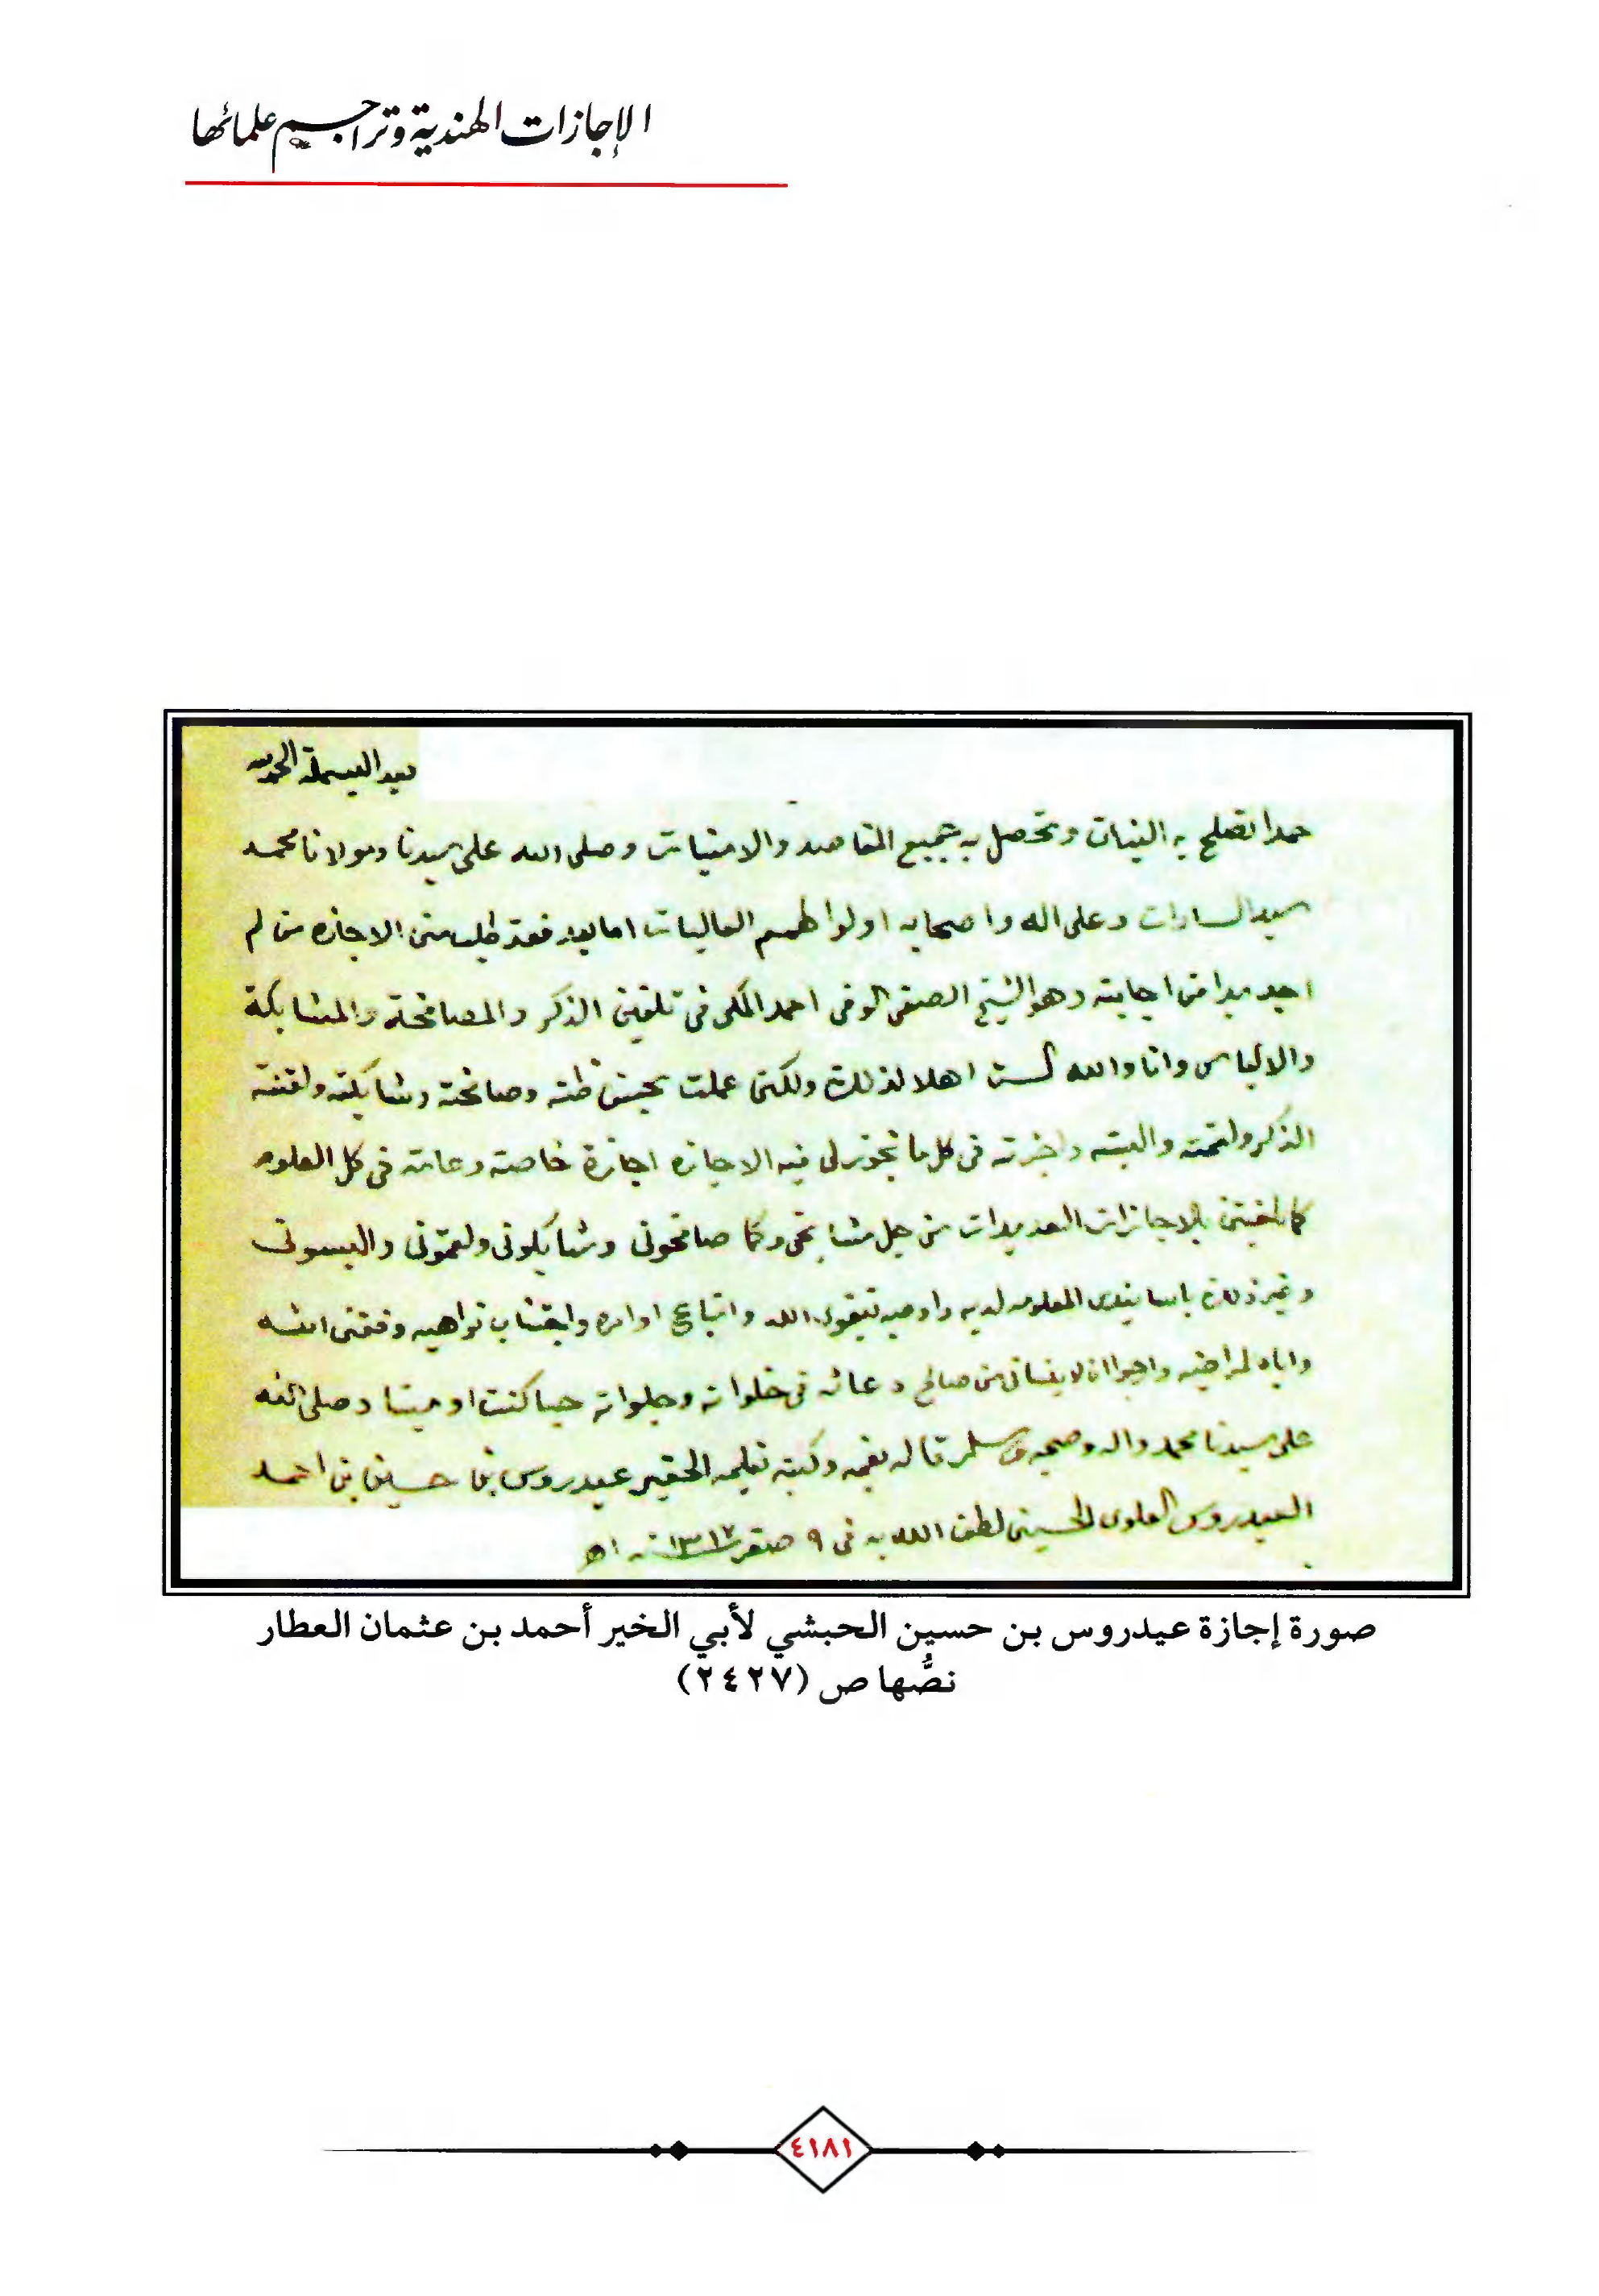 الإجازات الهندية وتراجيم علمائها
بعد البسملة الحمد لله
حمدا تصلح به النيات وتحصل به جميع المقاصد والامنيات وصلى الله على سيدنا ومولانا محمد
سيد السادات وعلى اله واصحابه اولوا الهمم العاليات اما بعد فقد طلب منى الاجازه من لم
اجد بدا من اجابته وهو الشيخ الصفى الوفى احمد المكى فى تلقين الذكر والمصافحة والمشابكة
والالباس وانا والله لست اهلا لذلك ولكنى عملت بحسن ظنه وصافحته وشابكته ولقنته
الذكر ولقمته والبسته واجزته فى كل ما تجوز لى فيه الاجازه اجازة خاصة وعامة فى كل العلوم
كما بالاجازات العديدات من جل مشايخى وكما صافحونى وشابكونى ولقمونى والبسونى
وغير ذلك باسانيدى المعلومه لديه واوصيه بتقوى الله واتباع اوامره واجتناب نواهيه وفقنى الله
واياه لمراضيه وارجوا ان لا ينسانى من صالح دعائه فى خلواته وجلواته حيا كنت او ميتا وصلى الله
على سيدنا محمد واله وصحبه وسلم قاله بفمه وكتبه بقلمه الحقير عيدروس بن حسين بن احمد
العيدروس العلوى الحسينى لطف الله به فى ٩ صفر سنة ١٣١٢ اهـ
صورة إجازة عيدروس بن حسين الحبشي لأبي الخير أحمد بن عثمان العطار
نصُّها ص (٢٤٢٧)
٤١٨١